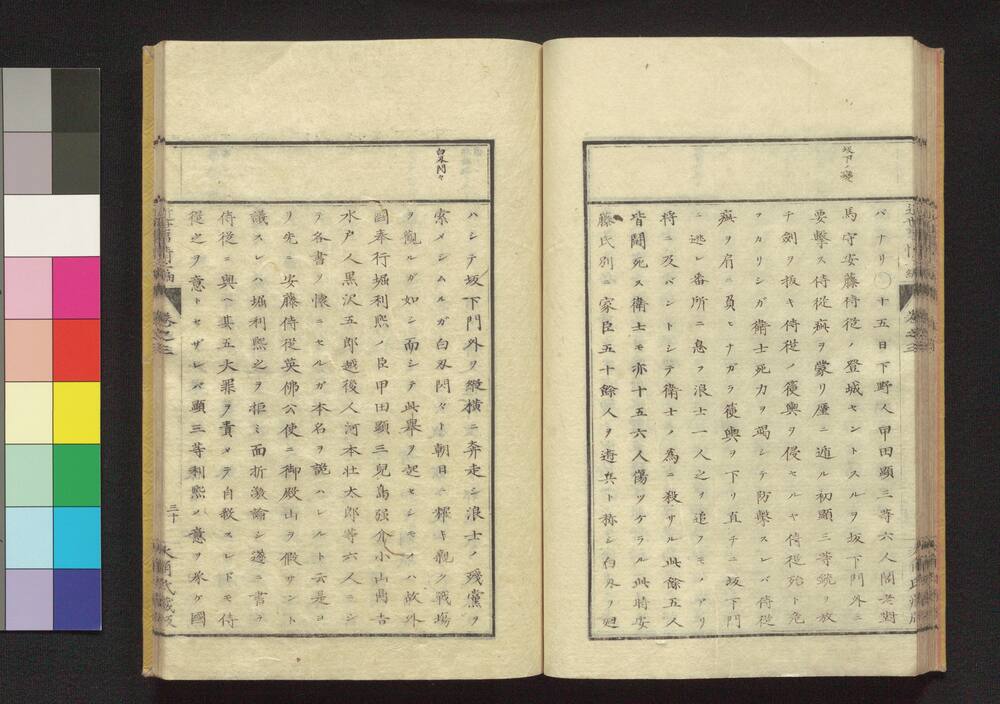 坂下ノ變
バナリ○十五日下野人甲田顯三等六人閣老對
馬守安藤侍從ノ登城セントスルヲ坂下門外ニ
要擊ス侍從疵ヲ蒙リ廑ニ遁ル初顯三等銃ヲ放
チ劍ヲ拔キ侍從ノ籠輿ヲ侵セルヤ侍從殆ト危
フカリシガ衛士死力ヲ竭シテ防擊スレバ侍從
疵ヲ肩ニ負ヒナガラ籠輿ヲ下リ直チニ坂下門
ニ逃レ番所ニ息フ浪士一人之ヲ追フモノアリ
將ニ及バントシテ衛士ノ爲ニ殺サル此餘五人
皆鬪死ス衛士モ亦十五六人傷ツケラル此時安
藤氏別ニ家臣五十餘人ヲ遊兵ト稱シ白刃ヲ廻
白刃閃々
ハシテ坂下門外ヲ縱橫ニ奔走シ浪士ノ殘黨ヲ
索メシムルガ白刃閃々ト朝日ニ輝キ親ク戰場
ヲ觀ルガ如シ而シテ此擧ヲ起セシモノハ故外
國奉行堀利熙ノ臣甲田顯三兒島强介小山典吉
水戶人黑沢五郎越後人河本壯太郎等六人ニシ
テ各書ヲ懷ニセルガ本名ヲ詭ハレルト云是ヨ
リ先ニ安藤侍從英佛公使ニ御殿山ヲ假サント
議スレハ堀利熙之ヲ拒ミ面折激論シ遂ニ書ヲ
侍從ニ與ヘ其五大罪ヲ責メテ自殺スレドモ侍
從之ヲ意トセザレバ顯三等利熙ノ意ヲ承ケ國
卷之三
三十
卷之三